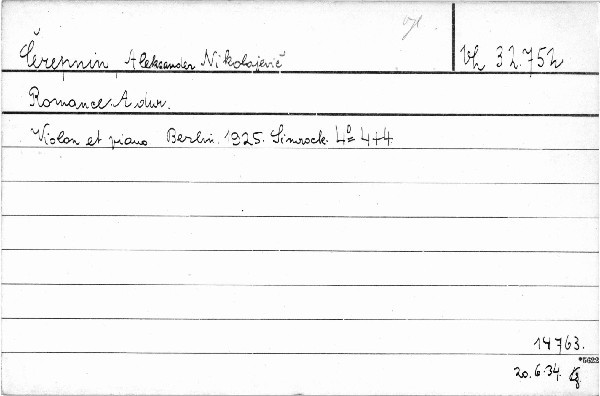 Čerepnin Aleksander Nikolajevič Vh 32.752
Romance. A dur.
Violon et piano Berlin. 1925. Simrock. 4º 4+4
14763.
*5622
20.6.34.